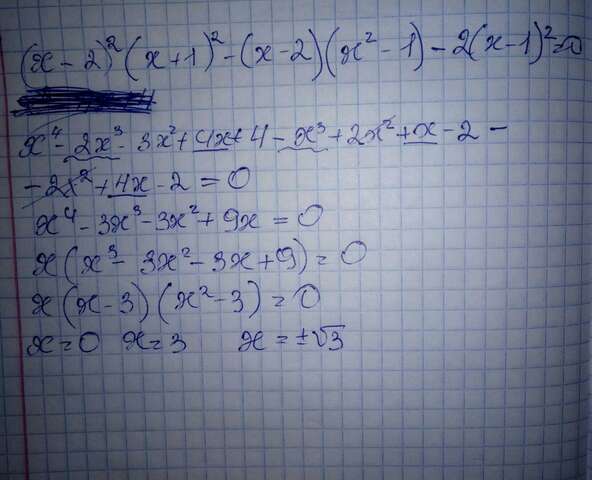 (x-2)²(x+1)²-(x-2)(x²-1)-2(x-1)²=0
x⁴-2x³-3x²+4x+4-x³+2x²+x-2-
-2x²+4x-2=0
x⁴-3x³-3x²+9x=0
x(x³-3x²-3x+9)=0
x(x-3)(x²-3)=0
x=0 x=3 x=±√3